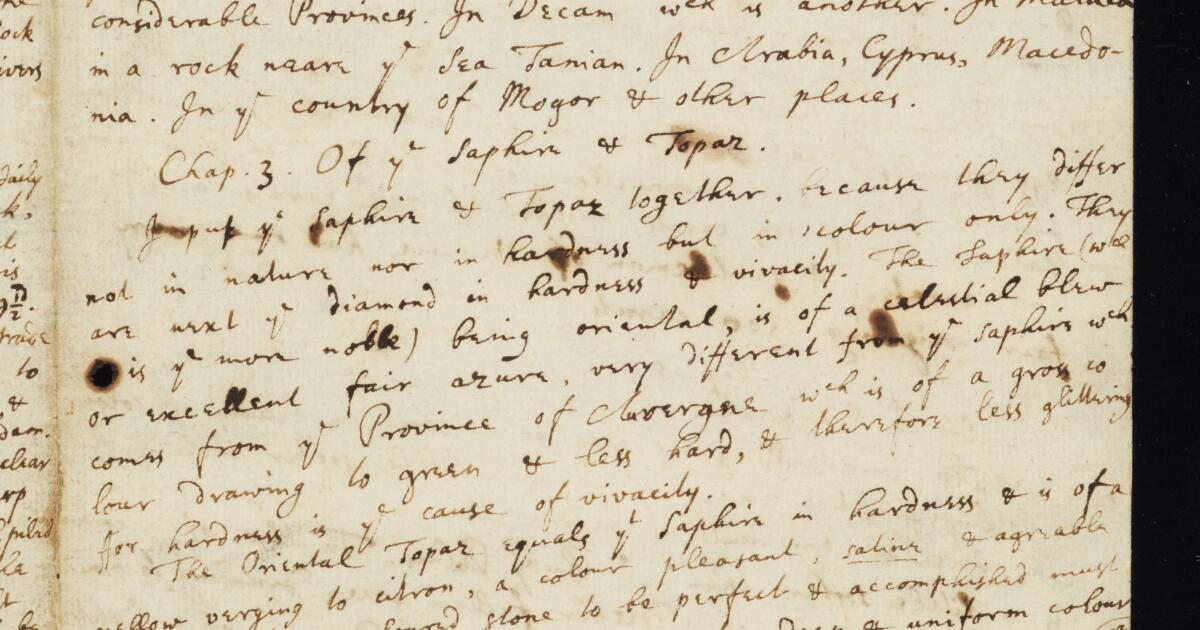 considerable Provinces. In Decam wch is another. In
in a rock neare ye Sea Tanian. In Arabia, Cyprus, Macedo-
nia. In ye country of Mogor & other places.
Chap. 3. Of ye Saphire & Topaz.
I put ye Saphire & Topaz together. because they differ
not in nature nor in hardness but in colour only. They
are next ye diamond in hardness & vivacity. The Saphire (wch
is ye more noble) being oriental, is of a celestial blew
or excellent fair azure, very different from ye saphire wch
comes from ye Province of Auvergne wch is of a gross co
lour drawing to green & less hard, & therefore less glittering
ffor hardness is ye cause of vivacity.
The Oriental Topaz equals ye Saphire in hardness & is of a
yellow verging to citron, a colour pleasant, satine & agreable
stone to be perfect & accomphished must
& uniform colour
ock
ivers
daily
k,
is
trade
to
&
dam.
clear
arp
spiled
ke
be